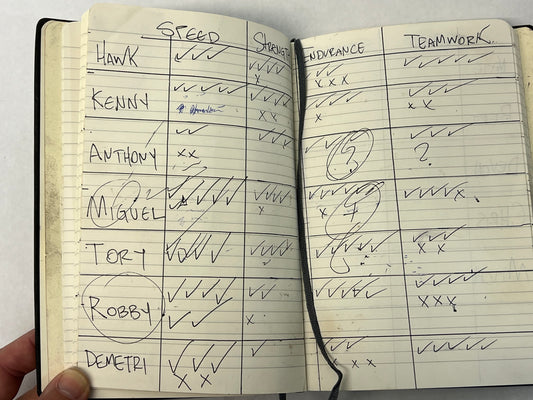 SPEED STRENGTH ENDURANCE TEAMWORK
HAWK ✓✓✓ ✓✓✓✓ ✓✓ ✓✓✓✓✓
x x x x
KENNY ✓✓✓✓ ✓✓✓✓ ✓✓✓ ✓✓
x x x x x
ANTHONY ✓✓ ✓✓✓ ?
x x
MIGUEL ✓✓✓✓✓ ✓✓✓✓ ✓✓✓✓✓ ✓✓✓✓x
x x
TORY ✓✓✓✓ ✓✓✓✓ ✓✓✓✓✓ ✓✓✓
x x
ROBBY ✓✓✓✓ ✓✓ ✓✓✓✓ ✓✓✓✓
✓✓ x x x x
DEMETRI ✓✓✓ ✓ ✓✓✓✓✓
x x x x x